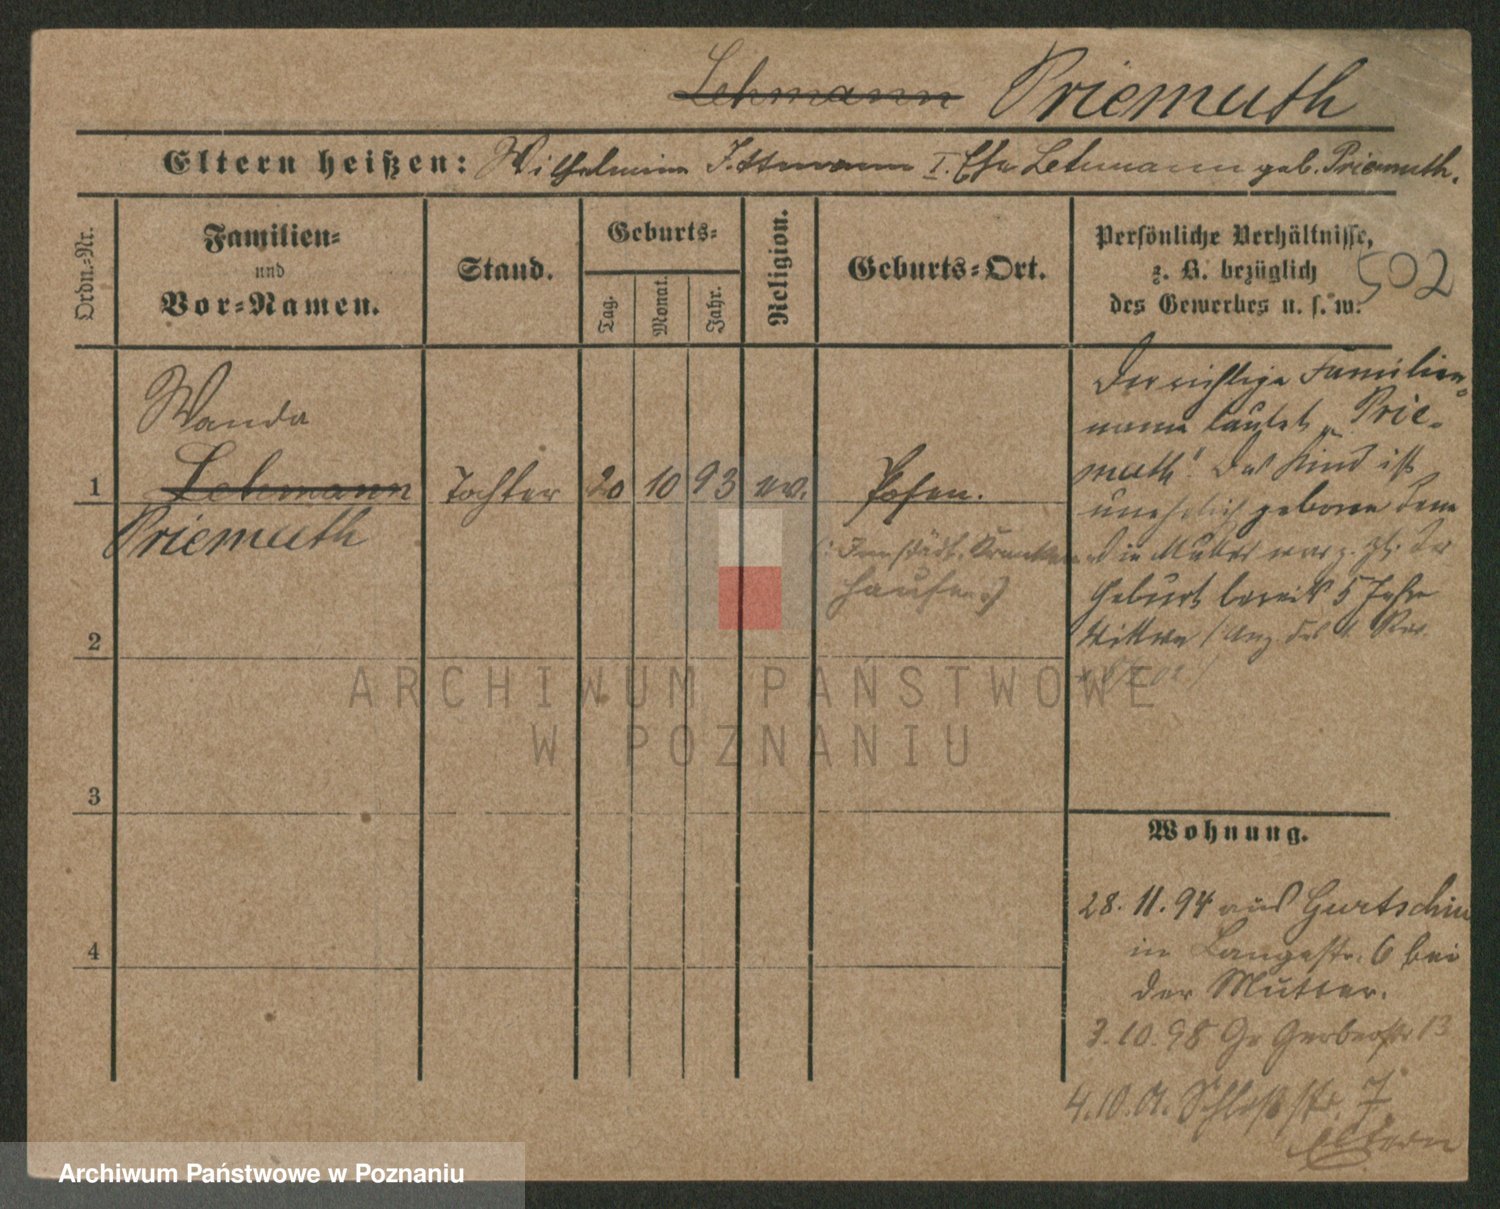 Lehmann Priemuth
Eltern heißen: Wilhelmine Ittmann I. Ehe Lehmann geb. Priemuth.
Ordn.-Nr.
Familien-
und
Vor-Namen.
Stand.
Geburts-
Tag.
Monat.
Jahr.
Religion.
Geburts-Ort.
Persönliche Verhältnisse,
z. B. bezüglich
des Gewerbes u. s. w.
502
Wanda
1 Lehmann Tochter 20 10 93 ev. Posen.
Priemuth
(: Im städt. Kranken
hause :)
Der richtige Familien-
name lautet „Prie-
muth". Das Kind ist
unehelich geboren denn
die Mutter war z. Zt. der
Geburt bereits 5 Jahre
Wittwe / Anz. des 1. Rev.
2
3
4
Wohnung.
28. 11. 94 aus Gurtschin
in Langestr. 6 bei
der Mutter.
3. 10. 98 Gr Gerberstr 13
4. 10. 01. Schloßstr. 7.
Eltern
ARCHIWUM PAŃSTWOWE
W POZNANIU
Archiwum Państwowe w Poznaniu